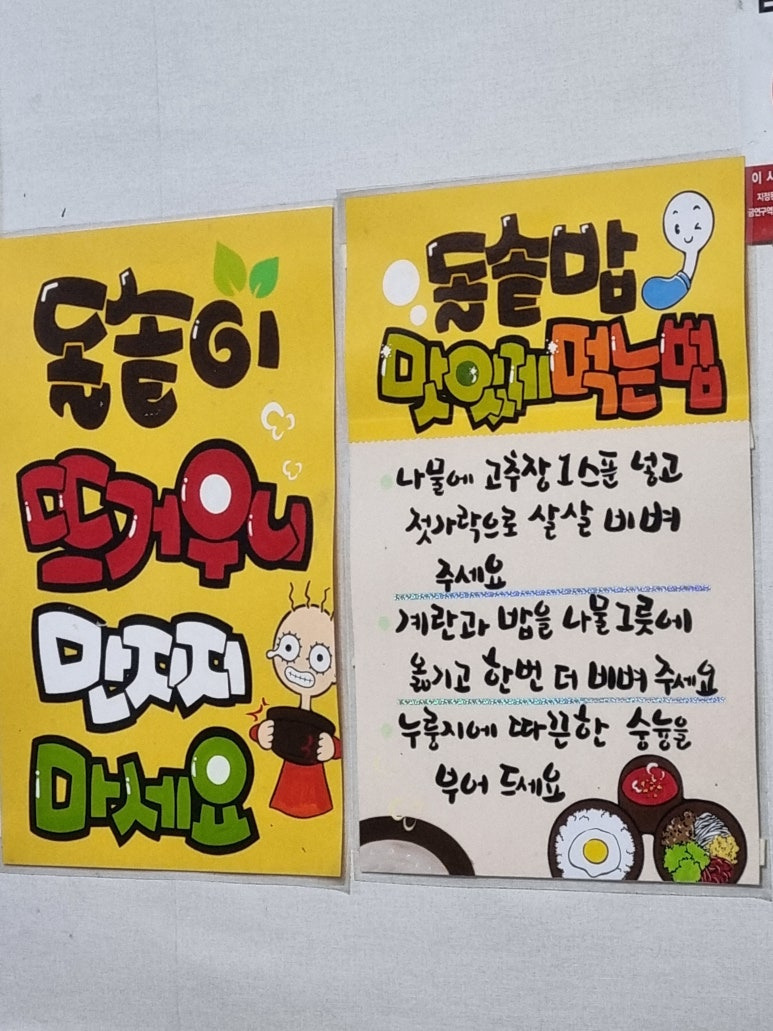 돌솥이
뜨거우니
만지지
마세요
돌솥밥
맛있게 먹는 법
나물에 고추장 1스푼 넣고
젓가락으로 살살 비벼
주세요
계란과 밥을 나물그릇에
옮기고 한번 더 비벼 주세요
누룽지에 따끈한 숭늉을
부어 드세요
이 사
지정
금연구역